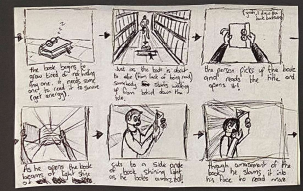 the book begins to
grow tired of not having
any one. it needs some
one to read it to survive
(get energy)
Just as the book is about
to die (from lack of being read)
somebody starts walking
up from behind down the
isle.
the person picks up the book
and reads the title and
opens it
As he opens the book
beams of light shine
out
cuts to a side angle
of book shining light
as he looks amazed
through amazement of the
book he slams it into
his face to read more